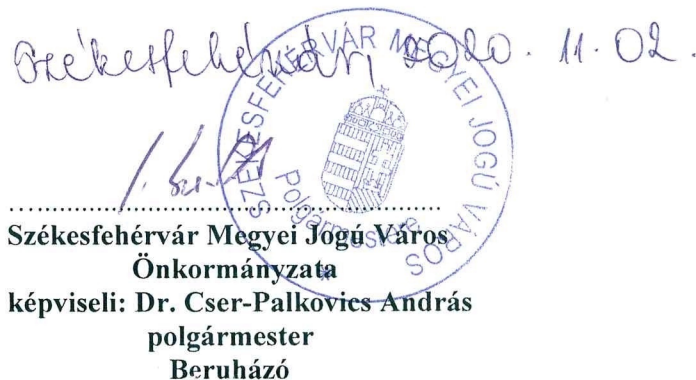 Székesfehérvár, 2020. 11. 02.
SZÉKESFEHÉRVÁR MEGYEI JOGÚ VÁROS
Polgármestere
Székesfehérvár Megyei Jogú Város
Önkormányzata
képviseli: Dr. Cser-Palkovics András
polgármester
Beruházó